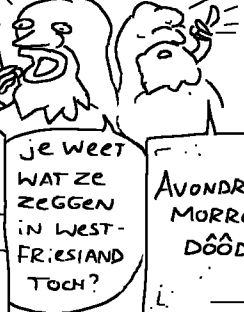 je WEET
WAT ZE
ZEGGEN
iN WEST-
FRiESlAND
TOCH?
AVONDR
MORRO
DÔÔD